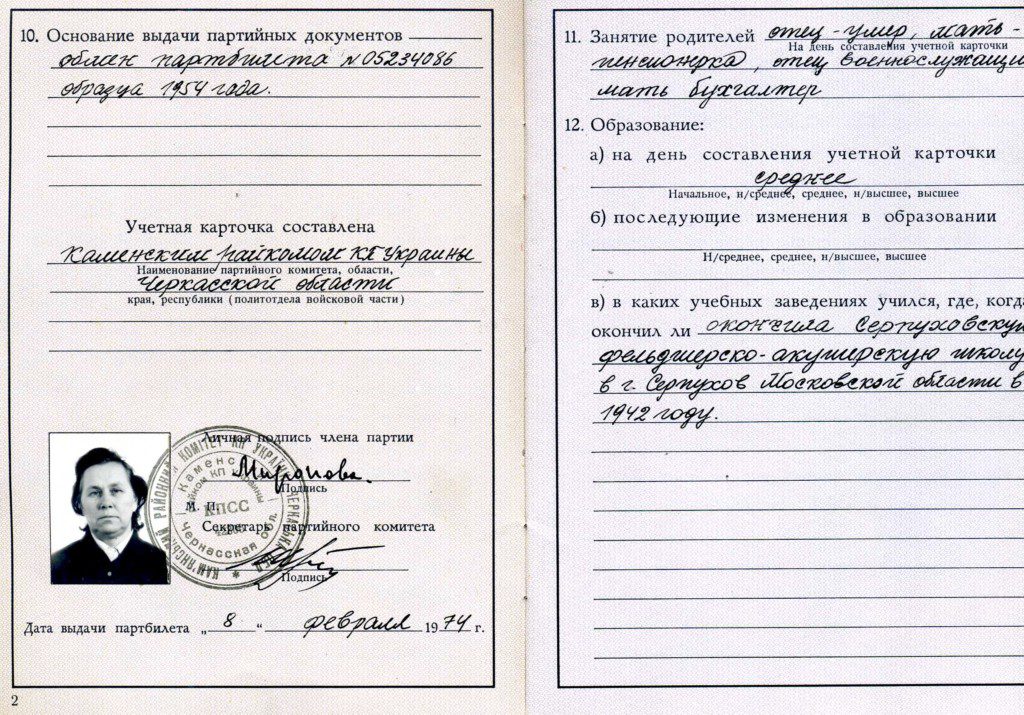 10. Основание выдачи партийных документов
обмен партбилета №05234086
образца 1954 года.
Учетная карточка составлена
Каменским райкомом КП Украины
Наименование партийного комитета, области,
Черкасской области
края, республики (политотдела войсковой части)
Личная подпись члена партии
Миронова.
Подпись
М. П.
КАМ'ЯНСЬКИЙ РАЙОННИЙ КОМІТЕТ КП УКРАЇНИ
Каменс
райком КП Украины
КПСС
Черкасская обл.
Секретарь партийного комитета
Подпись
Дата выдачи партбилета „ 8 “ февраля 1974 г.
2
11. Занятие родителей отец - умер, мать -
На день составления учетной карточки
пенсионерка, отец военнослужащи
мать бухгалтер
12. Образование:
а) на день составления учетной карточки
среднее
Начальное, н/среднее, среднее, н/высшее, высшее
б) последующие изменения в образовании
Н/среднее, среднее, н/высшее, высшее
в) в каких учебных заведениях учился, где, когда
окончил ли окончила Серпуховскую
фельдшерско-акушерскую школу
в г. Серпухов Московской области в
1942 году.